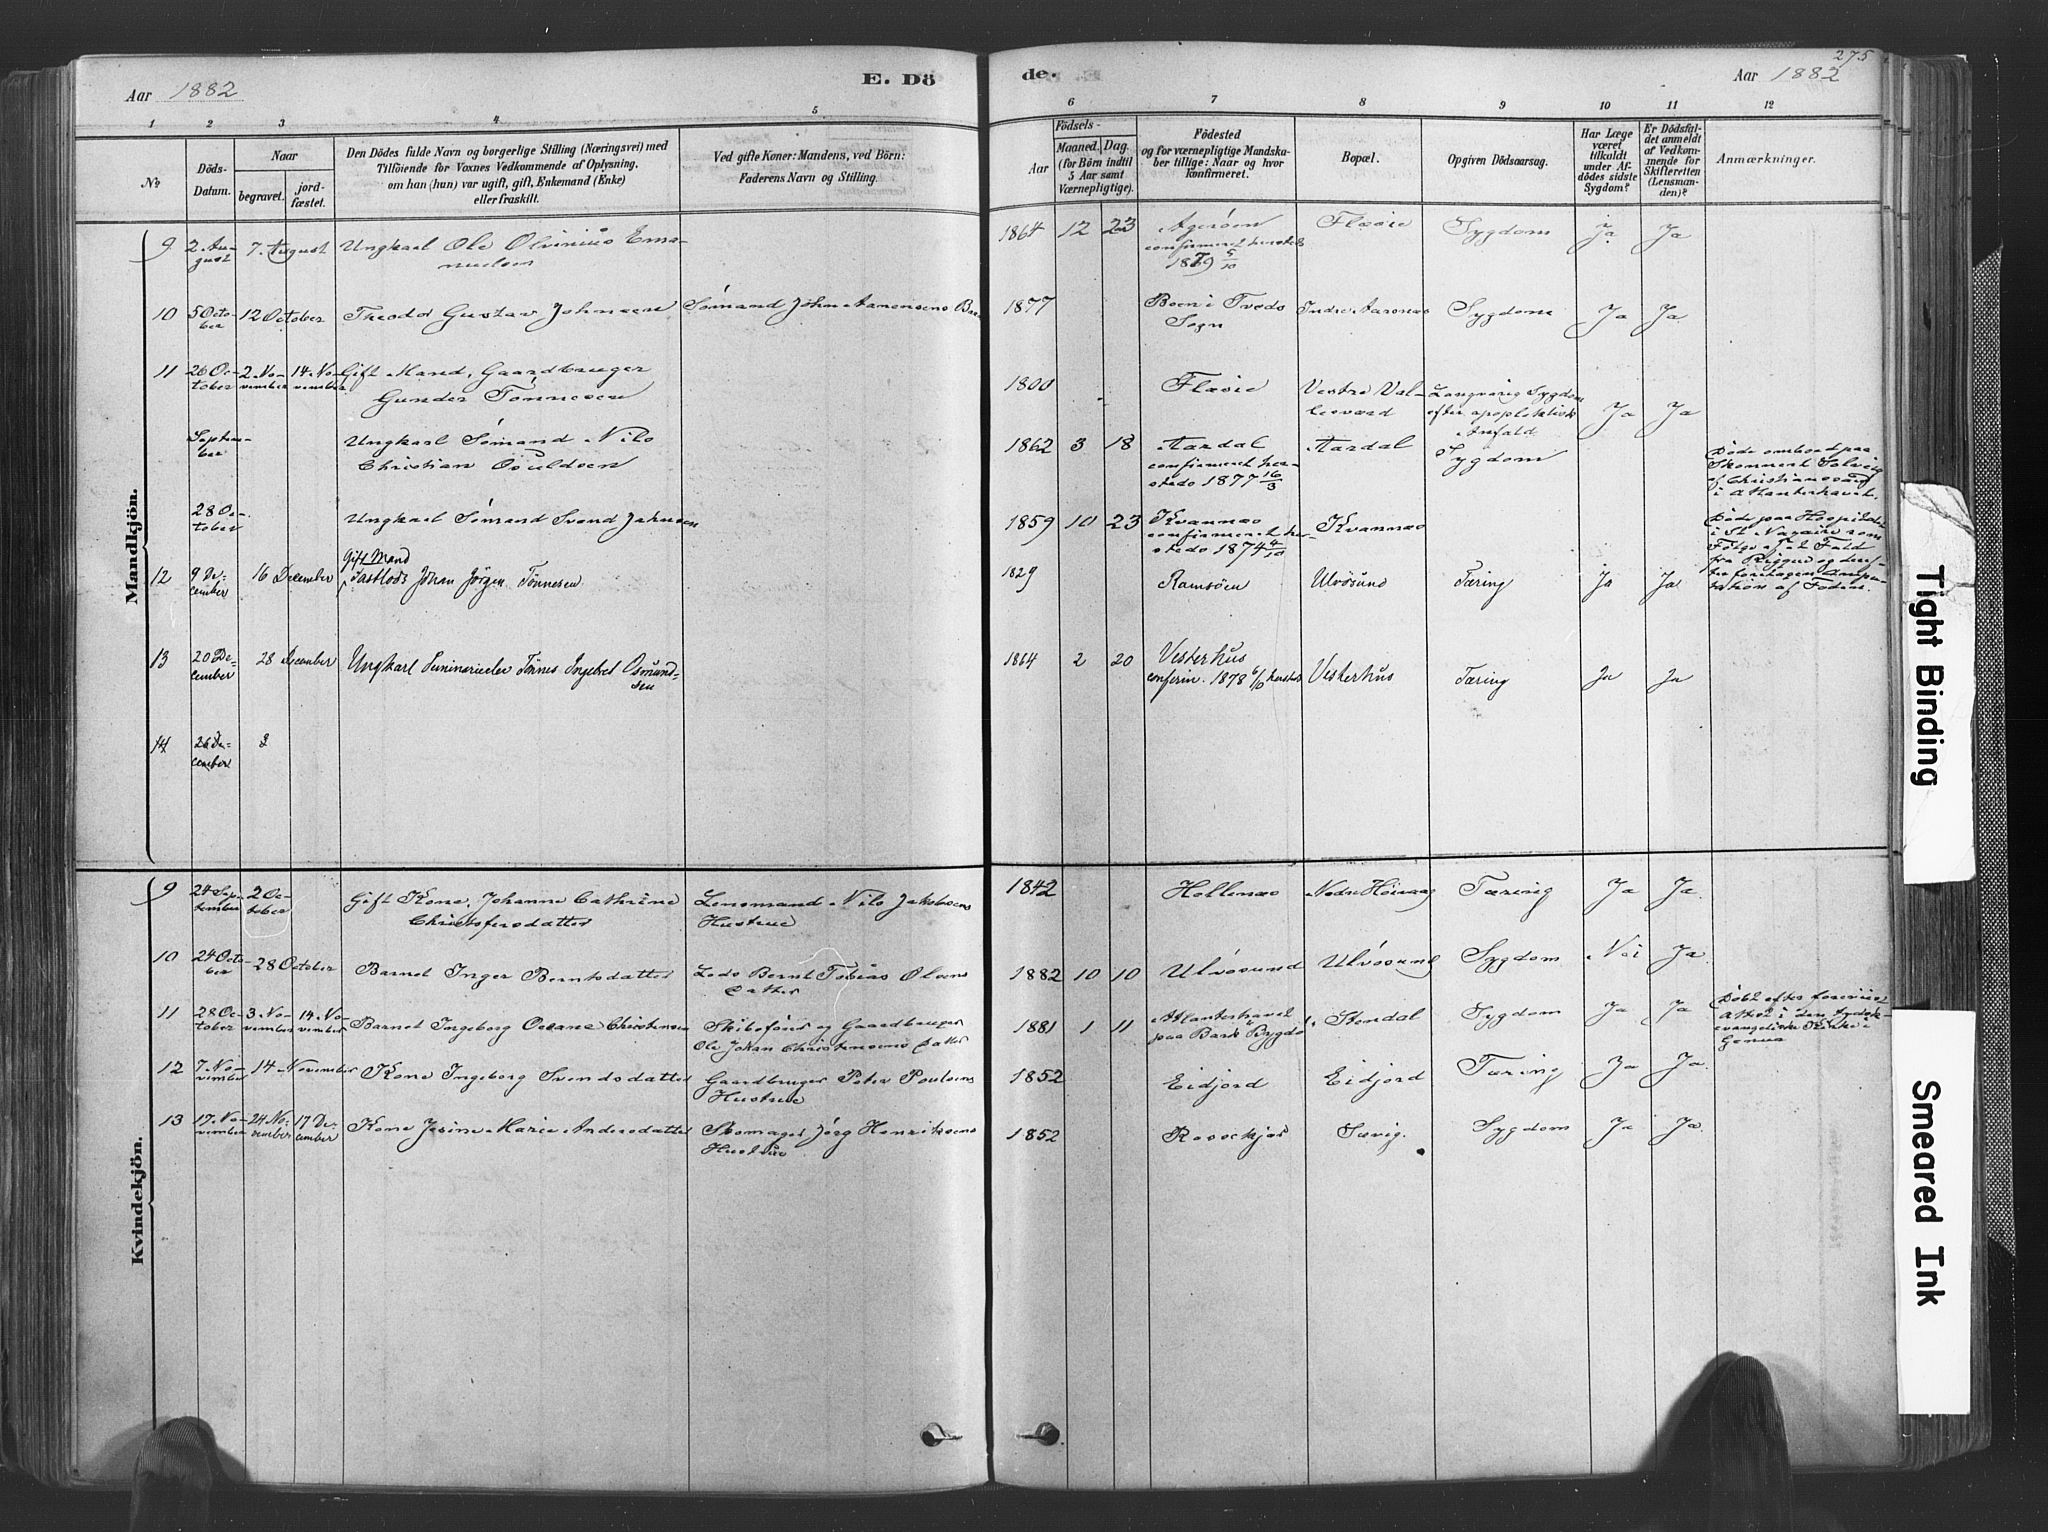 275
Aar 1882
E. Dö
de.
Aar 1882
1 2 3 4 5
6 7 8 9 10 11 12
No
Döds-
Datum.
Naar
begravet.
jord-
fæstet.
Den Dödes fulde Navn og borgerlige Stilling (Næringsvei) med
Tilföiende for Voxnes Vedkommende af Oplysning,
om han (hun) var ugift, gift, Enkemand (Enke)
eller fraskilt.
Ved gifte Koner: Mandens, ved Börn:
Faderens Navn og Stilling.
Födsels-
Aar
Maaned. Dag.
(for Börn indtil
5 Aar samt
Værnepligtige).
Födested
og for værnepligtige Mandska-
ber tillige: Naar og hvor
konfirmeret.
Bopæl.
Opgiven Dödsaarsag.
Har Læge
været
tilkaldt
under Af-
dödes sidste
Sygdom?
Er Dödsfal-
det anmeldt
af Vedkom-
mende for
Skifteretten
(Lensman-
den)?
Anmærkninger.
Mandkjön.
9 2 Au-
gust 7. August Ungkarl Ole Olvinius Ema-
nuelsen 1864 12 23 Agerøen
confirmeret hersteds
1879 5/10 Flæsie Sygdom Ja Ja
10 5 Octo-
ber 12 October Theodor Gustav Johnsen Sømand John Aanensens Barn 1877 Boen i Tveds
Sogn Indre Aaros Sygdom Ja Ja
11 26 Oc-
tober 2. No-
vember 14. No-
vember Gift Mand, Gaardbruger
Gunder Tönnesen 1800 Flæsie Vestre Val-
lesværd Langvarig Sygdom
efter apoplektisk
Anfald Ja Ja
Septem-
ber Ungkarl Sømand Nils
Christian Osuldsen 1862 3 18 Aardal
confirmeret her-
steds 1877 16/3 Aardal Sygdom Døde ombord paa
Skonnert Solveig
af Christianssand
i Atlanterhavet.
28 Oc-
tober Ungkarl Sømand Svend Jahnsen 1859 10 23 Kvannæs
confirmeret her-
steds 1874 4/10 Kvannæs Døde paa Hospitalet
i St Nazaire som
Følge af et Fald
fra Riggen og der-
efter foretagen Ampu-
tation af Foden.
12 9 De-
cember 16 December Gift Mand
Fastlods Johan Jörgen Tönnesen 1829 Ramsöen Ulvösund Tæring Ja Ja
13 20 De-
cember 28 December Ungkarl Seminarieelev Tönnes Ingebret Osmund-
sen 1864 2 20 Vesterhus
confirm. 1878 6/10 herstds Vesterhus Tæring Ja Ja
14 26 De-
cember 2
Kvindekjön.
9 24 Sep-
tember 2 Oc-
tober Gift Kone, Johanne Cathrine
Christofersdatter Lensmand Nils Jakobsens
Hustrue 1842 Hellenæs Nedre Höivaag Tæring Ja Ja
10 24 Octo-
ber 28 October Barnet Inger Berntsdatter Lods Bernt Tobias Olsens
Datter 1882 10 10 Ulvösund Ulvösund Sygdom Nei Ja
11 28 Oc-
tober 3. No-
vember 14. No-
vember Barnet Ingeborg Oceane Christensen Skibsförer og Gaardbruger
Ole Johan Christensens Datter 1881 1 11 Atlanterhavet
paa Bark Bygdø Stendal Sygdom Ja Ja Døbt efter foreviist
Attest i den tydsk
evangeliske Kirke i
Genua
12 7. No-
vember 14 November Kone Ingeborg Svendsdatter Gaardbruger Peter Poulsens
Hustrue 1852 Eidjord Eidjord Tæring Ja Ja
13 17. No-
vember 24 No-
vember 17 De-
cember Kone Jesine Marie Andersdatter Skomager Jörg Henriksens
Hustrue 1852 Rosseskjær Sævig. Sygdom Ja Ja
Tight Binding
Smeared Ink